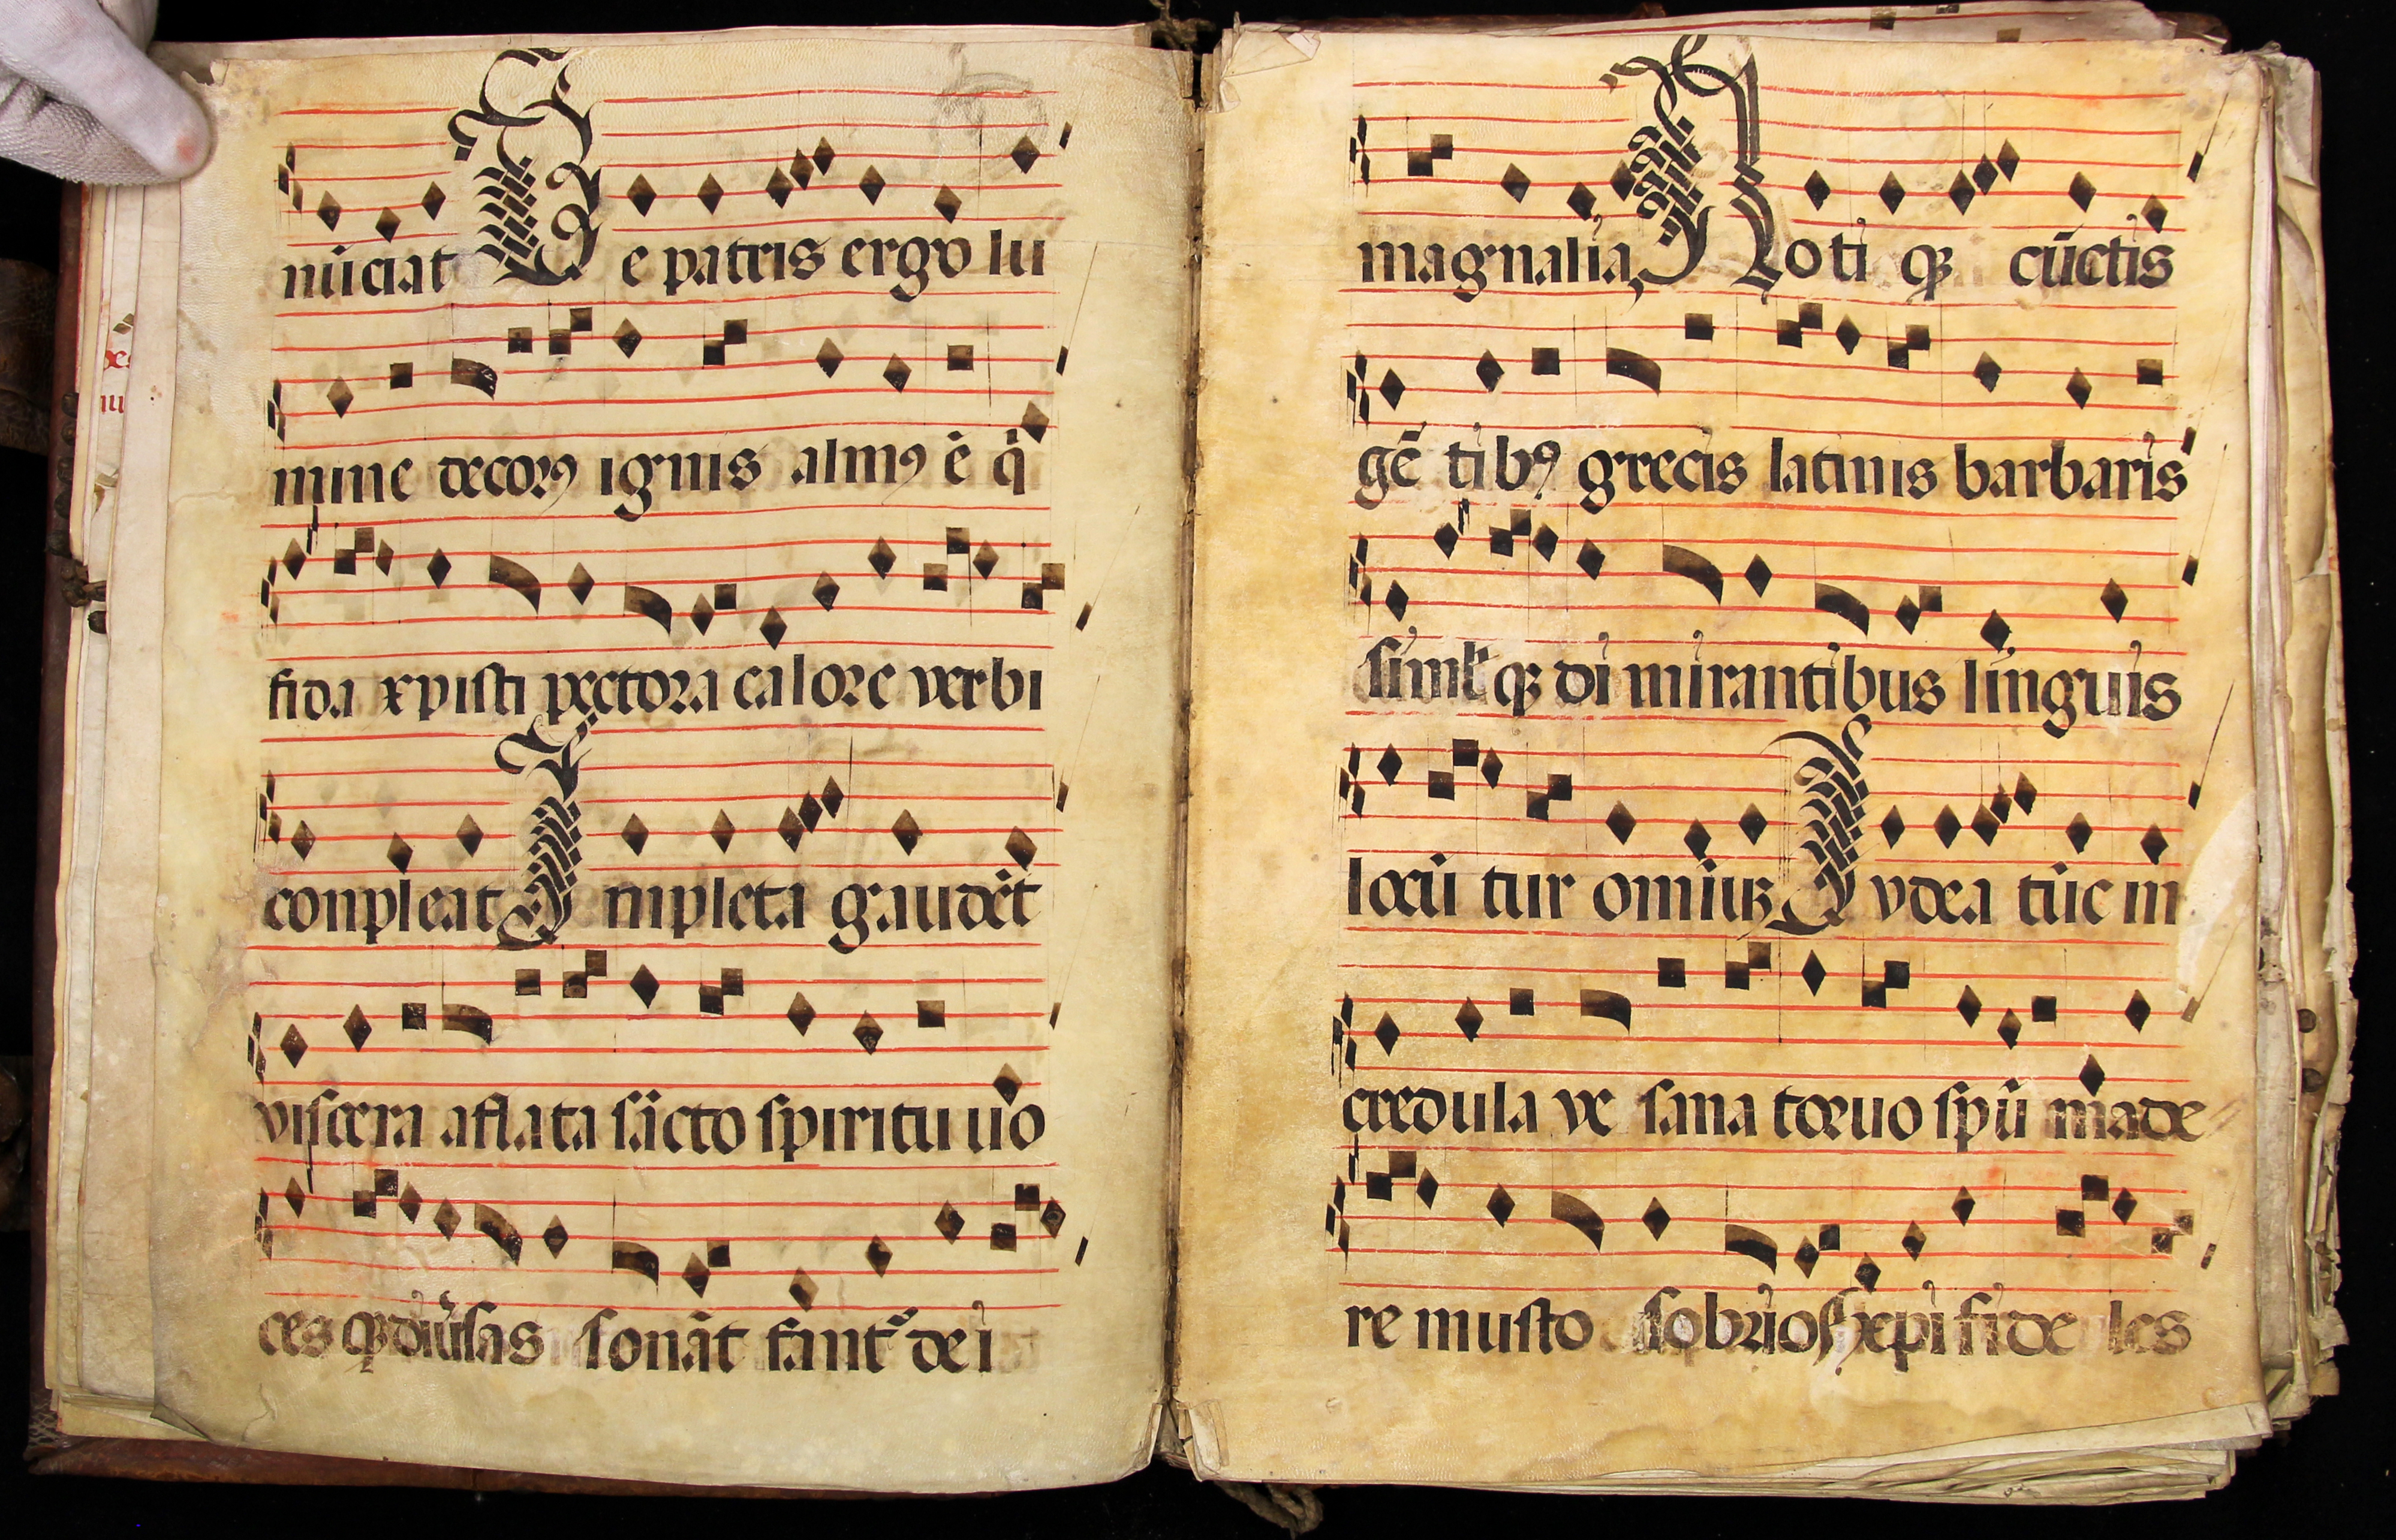 nūciat De patris ergo lu
mine decorꝯ ignis almꝯ ē q̇
fida xpisti pectora calore verbi
conpleat Inpleta gaudēt
viscera aflata sācto spiritu uo
ces qꝫ diūsas sonāt fantᷣ dei
magnalia, Noti qꝫ cūctis
gē tibꝯ grecis latinis barbaris
simĺ qꝫ di mirantibus linguis
locū tur omiuꝫ Iudea tūc in
credula ve sana toruo spū made
re musto sobrios xpi fide les